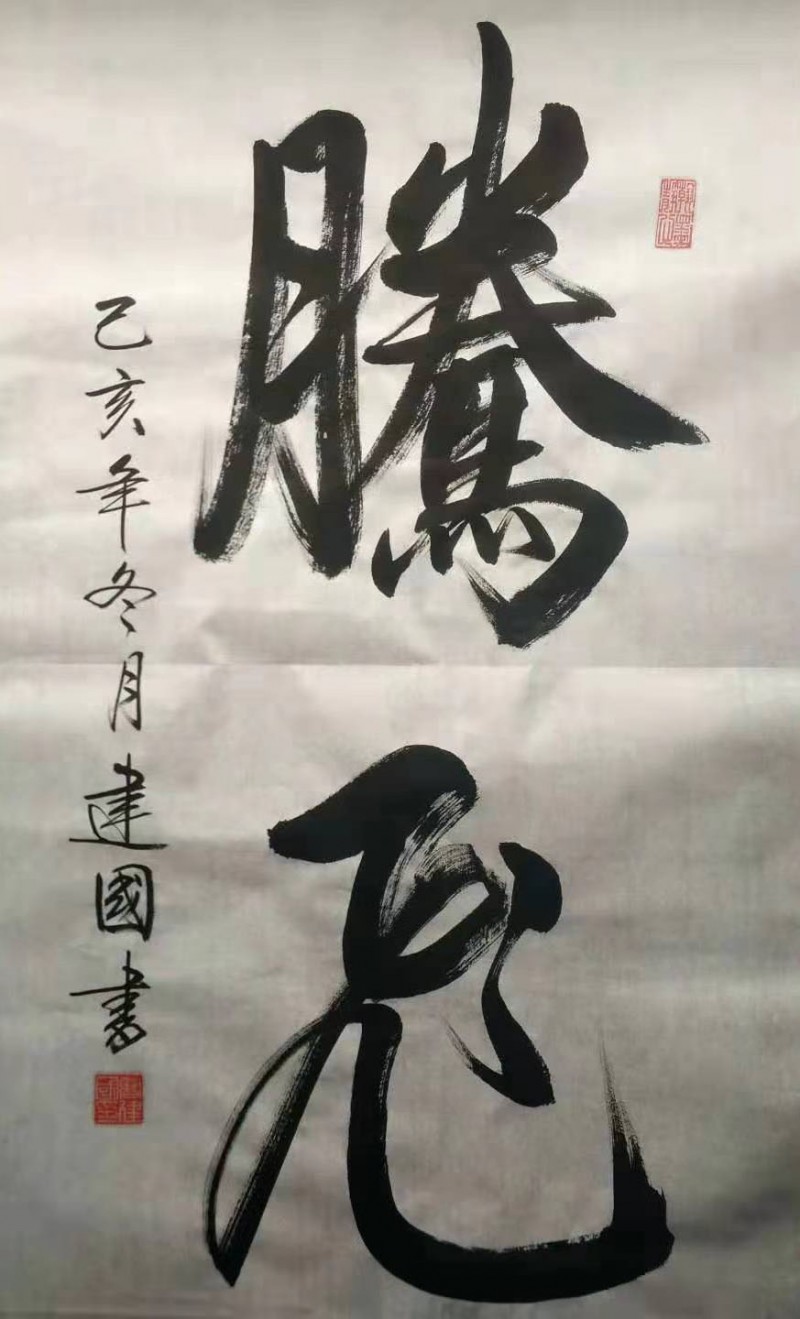 騰飛
己亥年冬月建國書